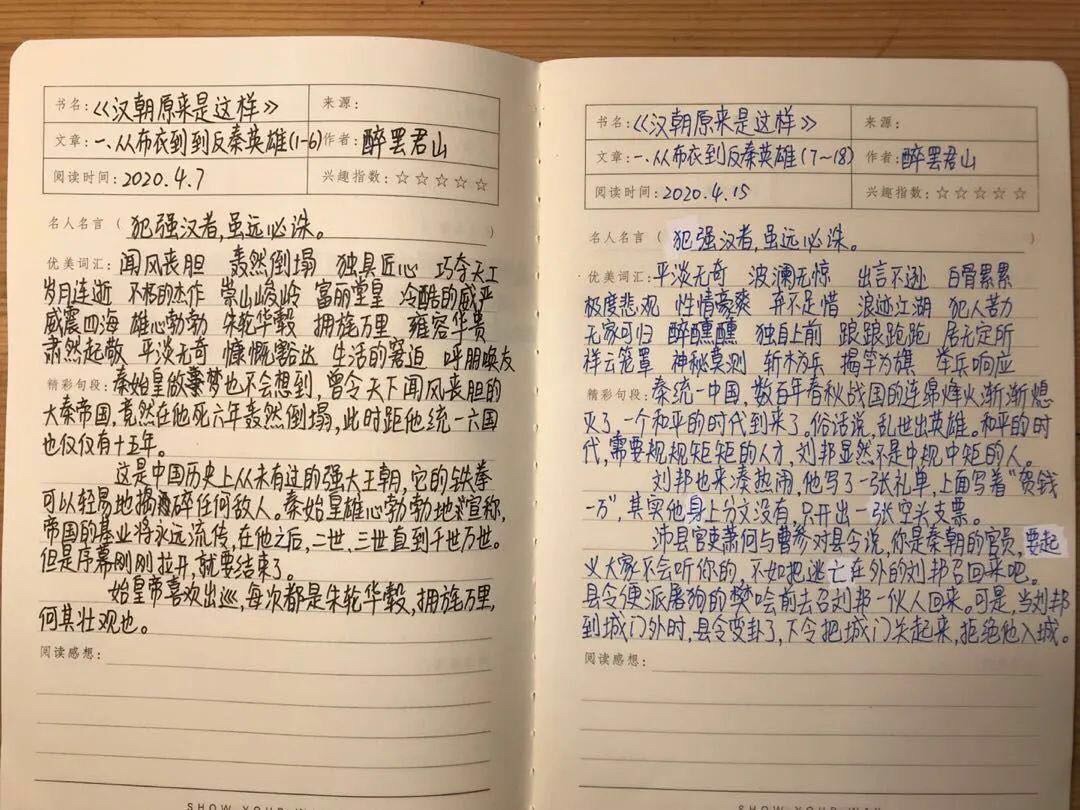 书名：《汉朝原来是这样》 来源：
文章：一、从布衣到到反秦英雄(1-6) 作者：醉罢君山
阅读时间：2020.4.7 兴趣指数：☆☆☆☆☆
名人名言（犯强汉者，虽远必诛。）
优美词汇：闻风丧胆 轰然倒塌 独具匠心 巧夺天工
岁月连逝 不朽的杰作 崇山峻岭 富丽堂皇 冷酷的威严
威震四海 雄心勃勃 朱轮华毂 拥旄万里 雍容华贵
肃然起敬 平淡无奇 慷慨豁达 生活的窘迫 呼朋唤友
精彩句段：秦始皇做梦也不会想到，曾令天下闻风丧胆的
大秦帝国，竟然在他死六年轰然倒塌，此时距他统一六国
也仅仅有十五年。
这是中国历史上从未有过的强大王朝，它的铁拳
可以轻易地捣碎任何敌人。秦始皇雄心勃勃地宣称，
帝国的基业将永远流传，在他之后，二世、三世直到千世万世。
但是序幕刚刚拉开，就要结束了。
始皇帝喜欢出巡，每次都是朱轮华毂，拥旄万里，
何其壮观也。
阅读感想：
书名：《汉朝原来是这样》 来源：
文章：一、从布衣到反秦英雄(7~18) 作者：醉罢君山
阅读时间：2020.4.15 兴趣指数：☆☆☆☆☆
名人名言（犯强汉者，虽远必诛。）
优美词汇：平淡无奇 波澜无惊 出言不逊 白骨累累
极度悲观 性情豪爽 弃不足惜 浪迹江湖 犯人苦力
无家可归 醉醺醺 独自上前 踉踉跄跄 居无定所
祥云笼罩 神秘莫测 斩木为兵 揭竿为旗 举兵响应
精彩句段：秦统一中国，数百年春秋战国的连绵烽火渐渐熄
灭了，一个和平的时代到来了。俗话说，乱世出英雄。和平的时
代，需要规规矩矩的人才，刘邦显然不是中规中矩的人。
刘邦也来凑热闹，他写了一张礼单，上面写着“贺钱
一万”，其实他身上分文没有，只开出一张空头支票。
沛县官吏萧何与曹参对县令说，你是秦朝的官员，要起
义大家不会听你的，不如把逃亡在外的刘邦召回来吧。
县令便派屠狗的樊哙前去召刘邦一伙人回来。可是，当刘邦
到城门外时，县令变卦了，下令把城门关起来，拒绝他入城。
阅读感想：